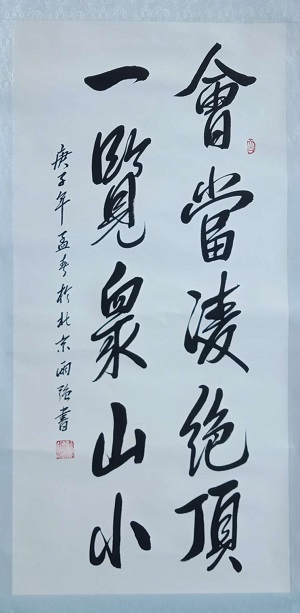 會當凌絕頂
一覽眾山小
庚子年孟春於北京雨強書